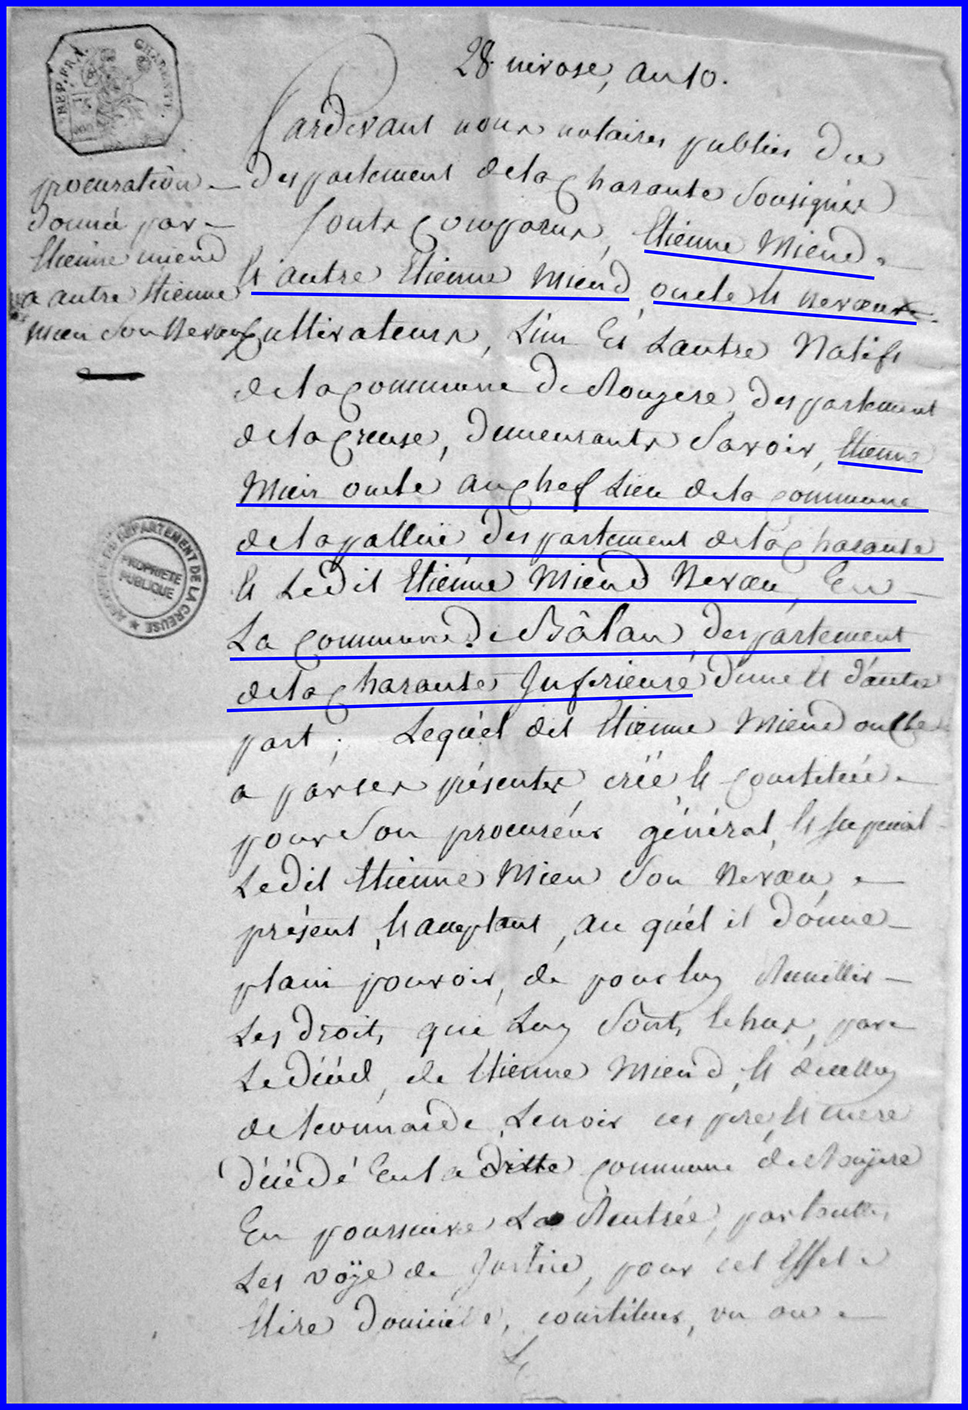 28 nivose, an 10.
REP. FRA.
CHARENTE.
procuration
donné par
Etienne miend
a autre Etienne
mien son Neveux
Pardevant nous notaires publics du
despartement de la Charante Sousignés
Sonts Comparus, Etienne Miend
et autre Etienne Miend oncle et neveux
Cultivateurs, L'un Et Lautre Natifs
de la Commune de Rouzere despartement
de la Creuse, demeurants Savoir, Etienne
Mien oncle au Chef Lieu de la Commune
de la palluë, despartement de la Charante
et Ledit Etienne Miend Neveu, En
La Commune de Bâlan, despartement
de la Charante Inferieure d'une et d'autre
part ; Lequél dit Etienne Miend oncle
a par ses présentes créé et Constitué
pour Son procureur général, et spécial
Ledit Etienne Mien Son Neveu,
présent, et acceptant, au quél il donne
plain pouvoir, de pour luy Receuillir
Les droits que Luy Sont Echus, par
Le décéd, de Etienne Miend, et
de Leonnarde Lenoir ces pere et mere
décédé En La ditte Commune de Rozere
En poursuivre La Rentrée, par touttes
Les voÿe de Justice, pour cet Effet
Elire domicile, constituer, un ou
ARCHIVES DU DÉPARTEMENT DE LA CREUSE
PROPRIÉTÉ
PUBLIQUE